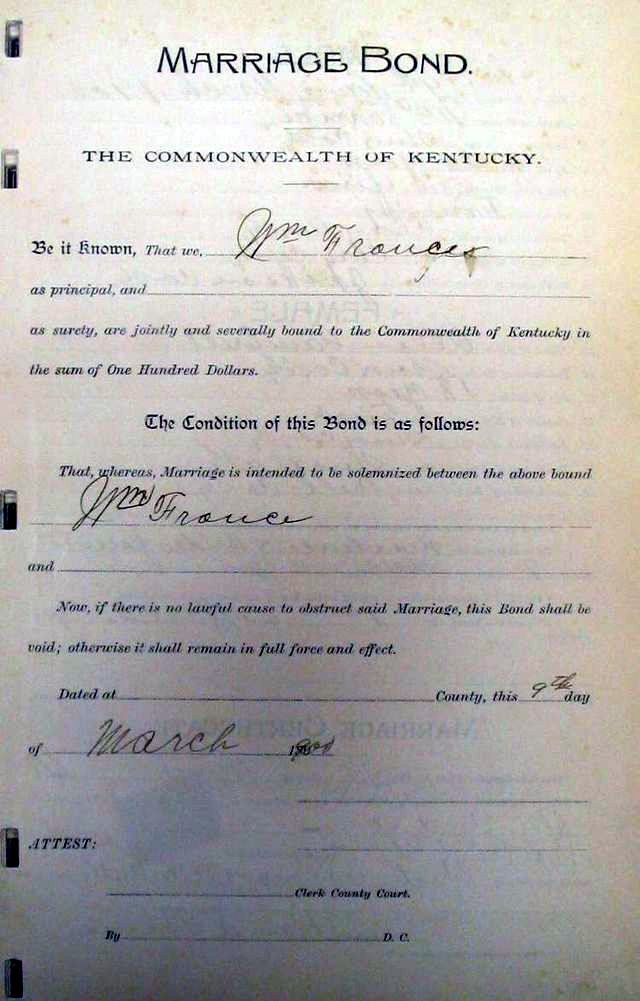 MARRIAGE BOND.
THE COMMONWEALTH OF KENTUCKY.
Be it Known, That we, Wm Frances
as principal, and
as surety, are jointly and severally bound to the Commonwealth of Kentucky in
the sum of One Hundred Dollars.
The Condition of this Bond is as follows:
That, whereas, Marriage is intended to be solemnized between the above bound
Wm France
and
Now, if there is no lawful cause to obstruct said Marriage, this Bond shall be
void; otherwise it shall remain in full force and effect.
Dated at County, this 9th day
of March
ATTEST:
Clerk County Court.
By D. C.